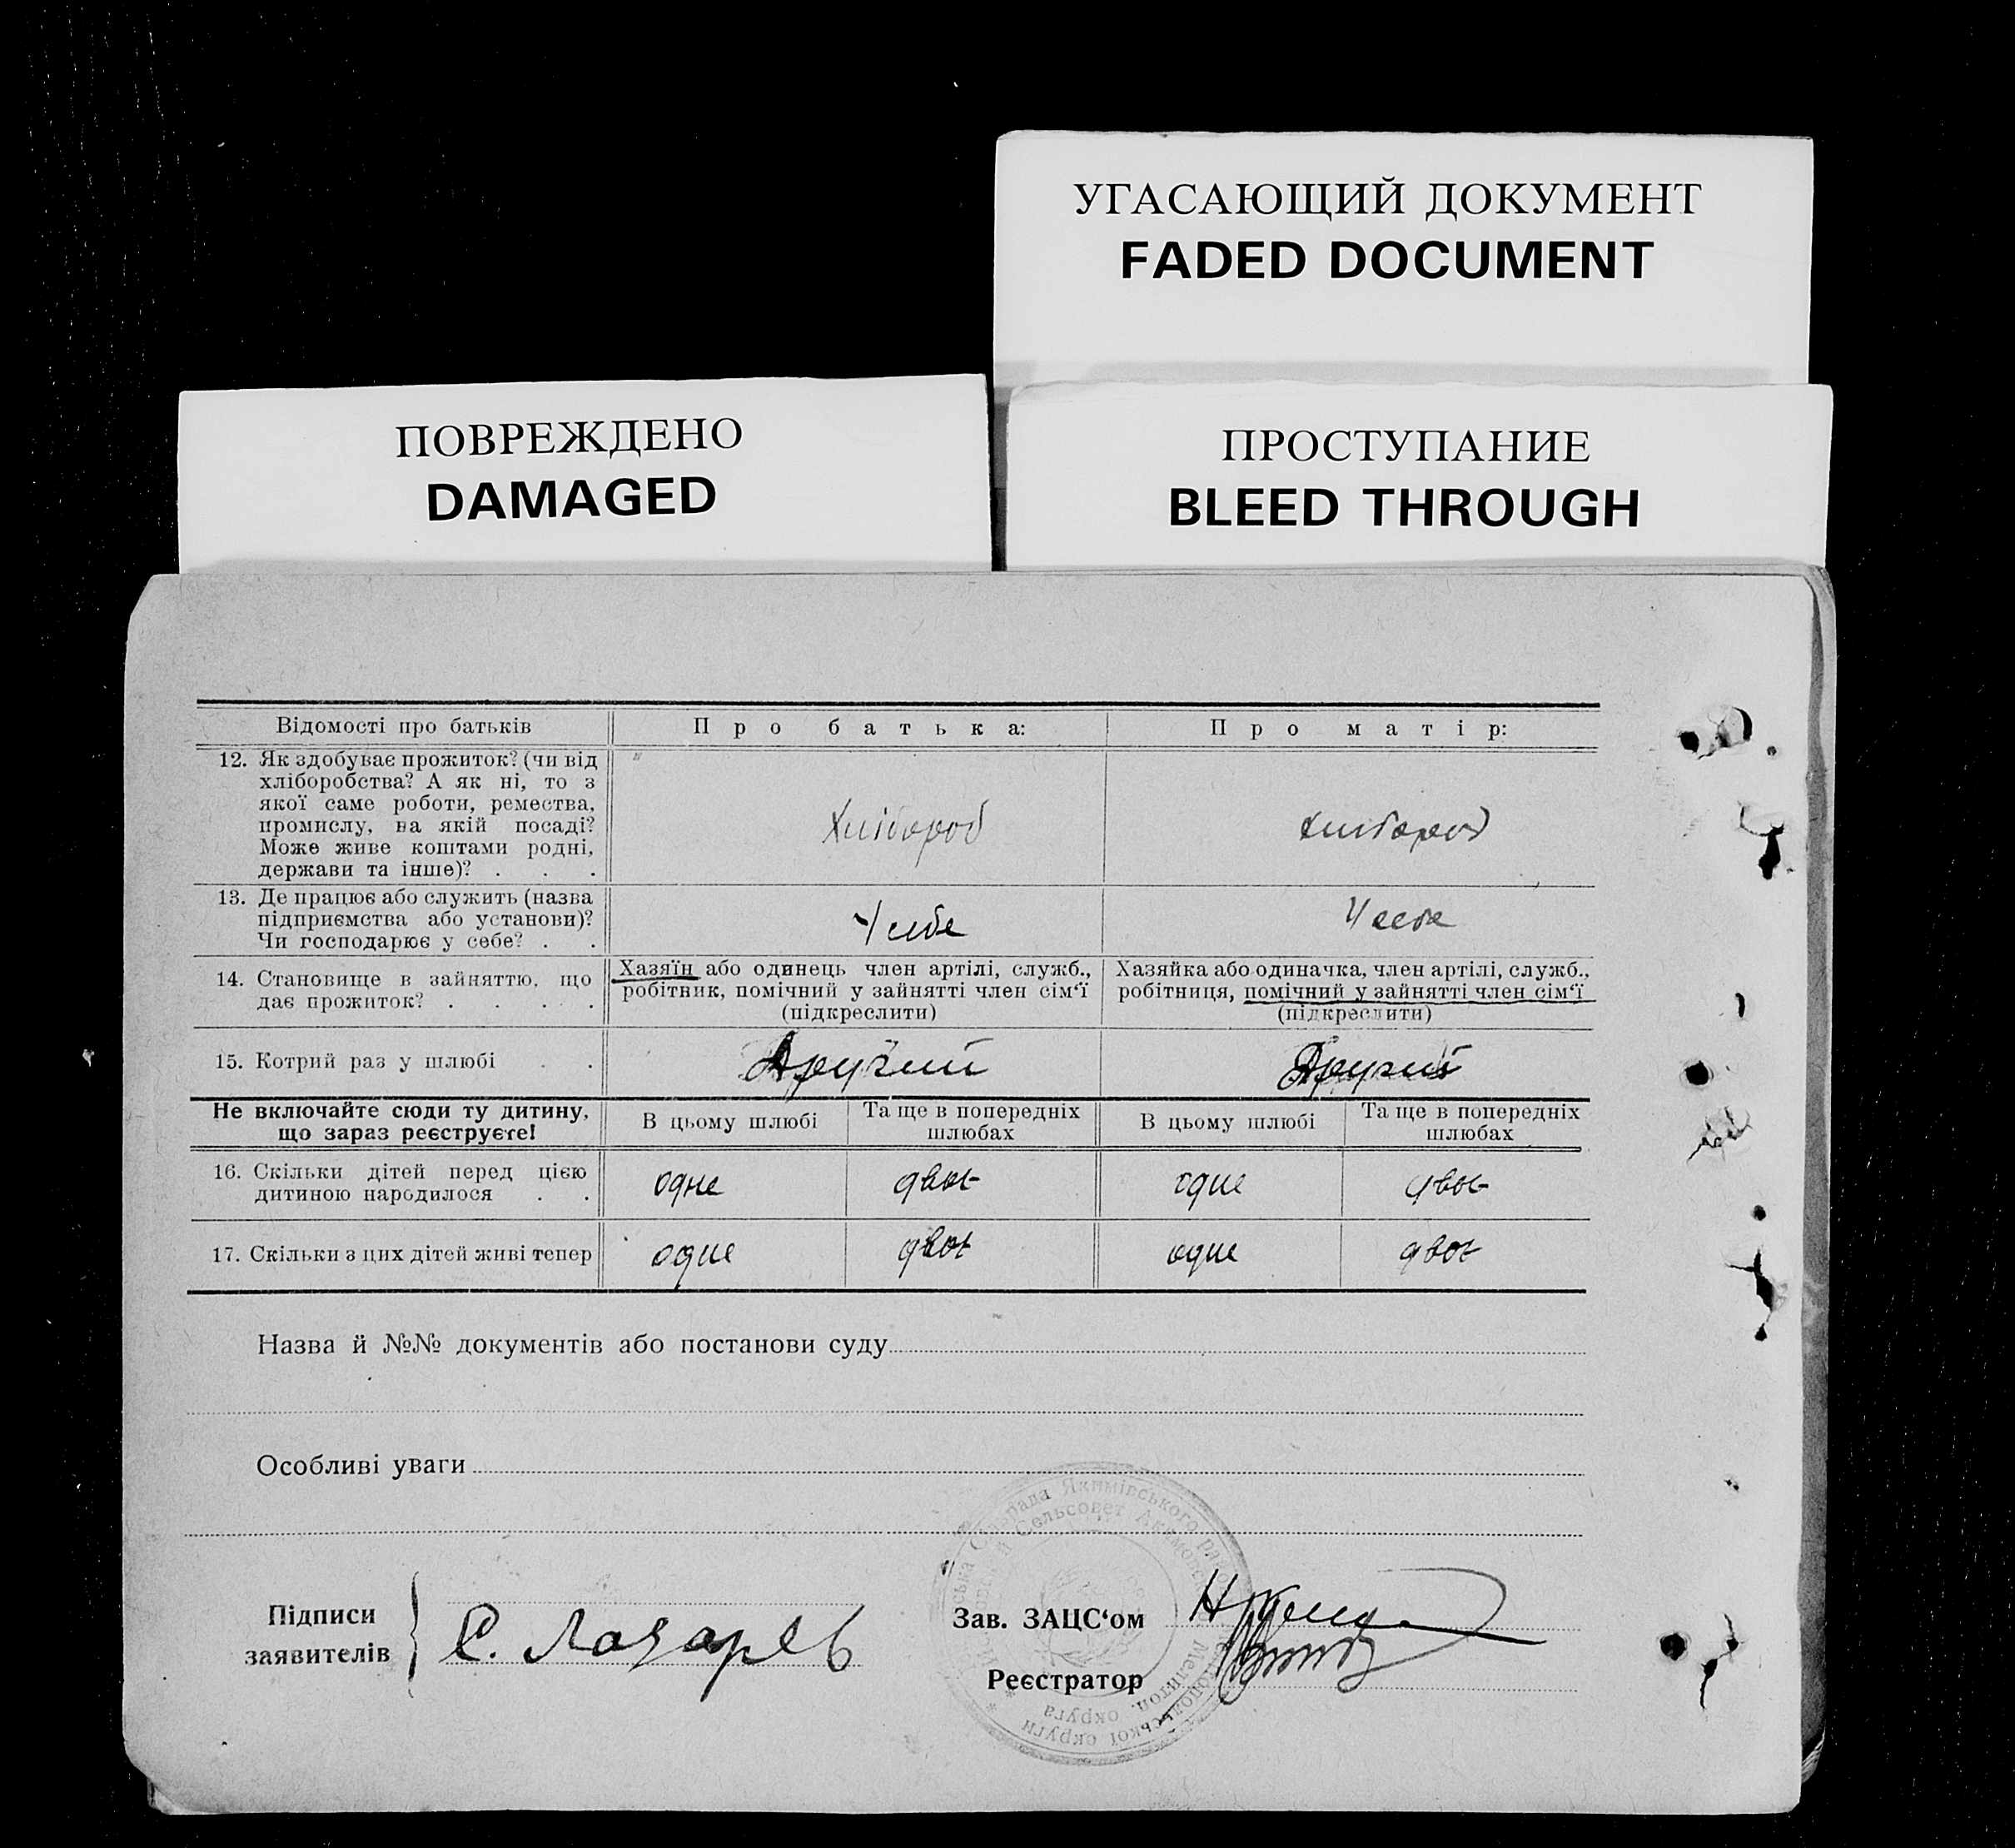 УГАСАЮЩИЙ ДОКУМЕНТ
FADED DOCUMENT
ПОВРЕЖДЕНО
DAMAGED
ПРОСТУПАНИЕ
BLEED THROUGH
Відомості про батьків
Про батька:
Про матір:
12. Як здобуває прожиток? (чи від
хліборобства? А як ні, то з
якої саме роботи, ремества,
промислу, на якій посаді?
Може живе коштами родні,
держави та інше)? . . .
Хлібороб
хлибороб
13. Де працює або служить (назва
підприємства або установи)?
Чи господарює у себе? . .
У себе
У себе
14. Становище в зайняттю, що
дає прожиток? . . . .
Хазяїн або одинець член артілі, служб.,
робітник, помічний у зайнятті член сім‘ї
(підкреслити)
Хазяйка або одиначка, член артілі, служб.,
робітниця, помічний у зайнятті член сім‘ї
(підкреслити)
15. Котрий раз у шлюбі . .
Другий
Другий
Не включайте сюди ту дитину,
що зараз реєструєте!
В цьому шлюбі
Та ще в попередніх
шлюбах
В цьому шлюбі
Та ще в попередніх
шлюбах
16. Скільки дітей перед цією
дитиною народилося . .
одне
двоє
одне
двоє
17. Скільки з цих дітей живі тепер
одне
двоє
одне
двоє
Назва й №№ документів або постанови суду
Особливі уваги
Підписи
заявителів
С. Лазарев
Зав. ЗАЦС‘ом
Реєстратор
Якимівського
Сельсовет
округи
округа